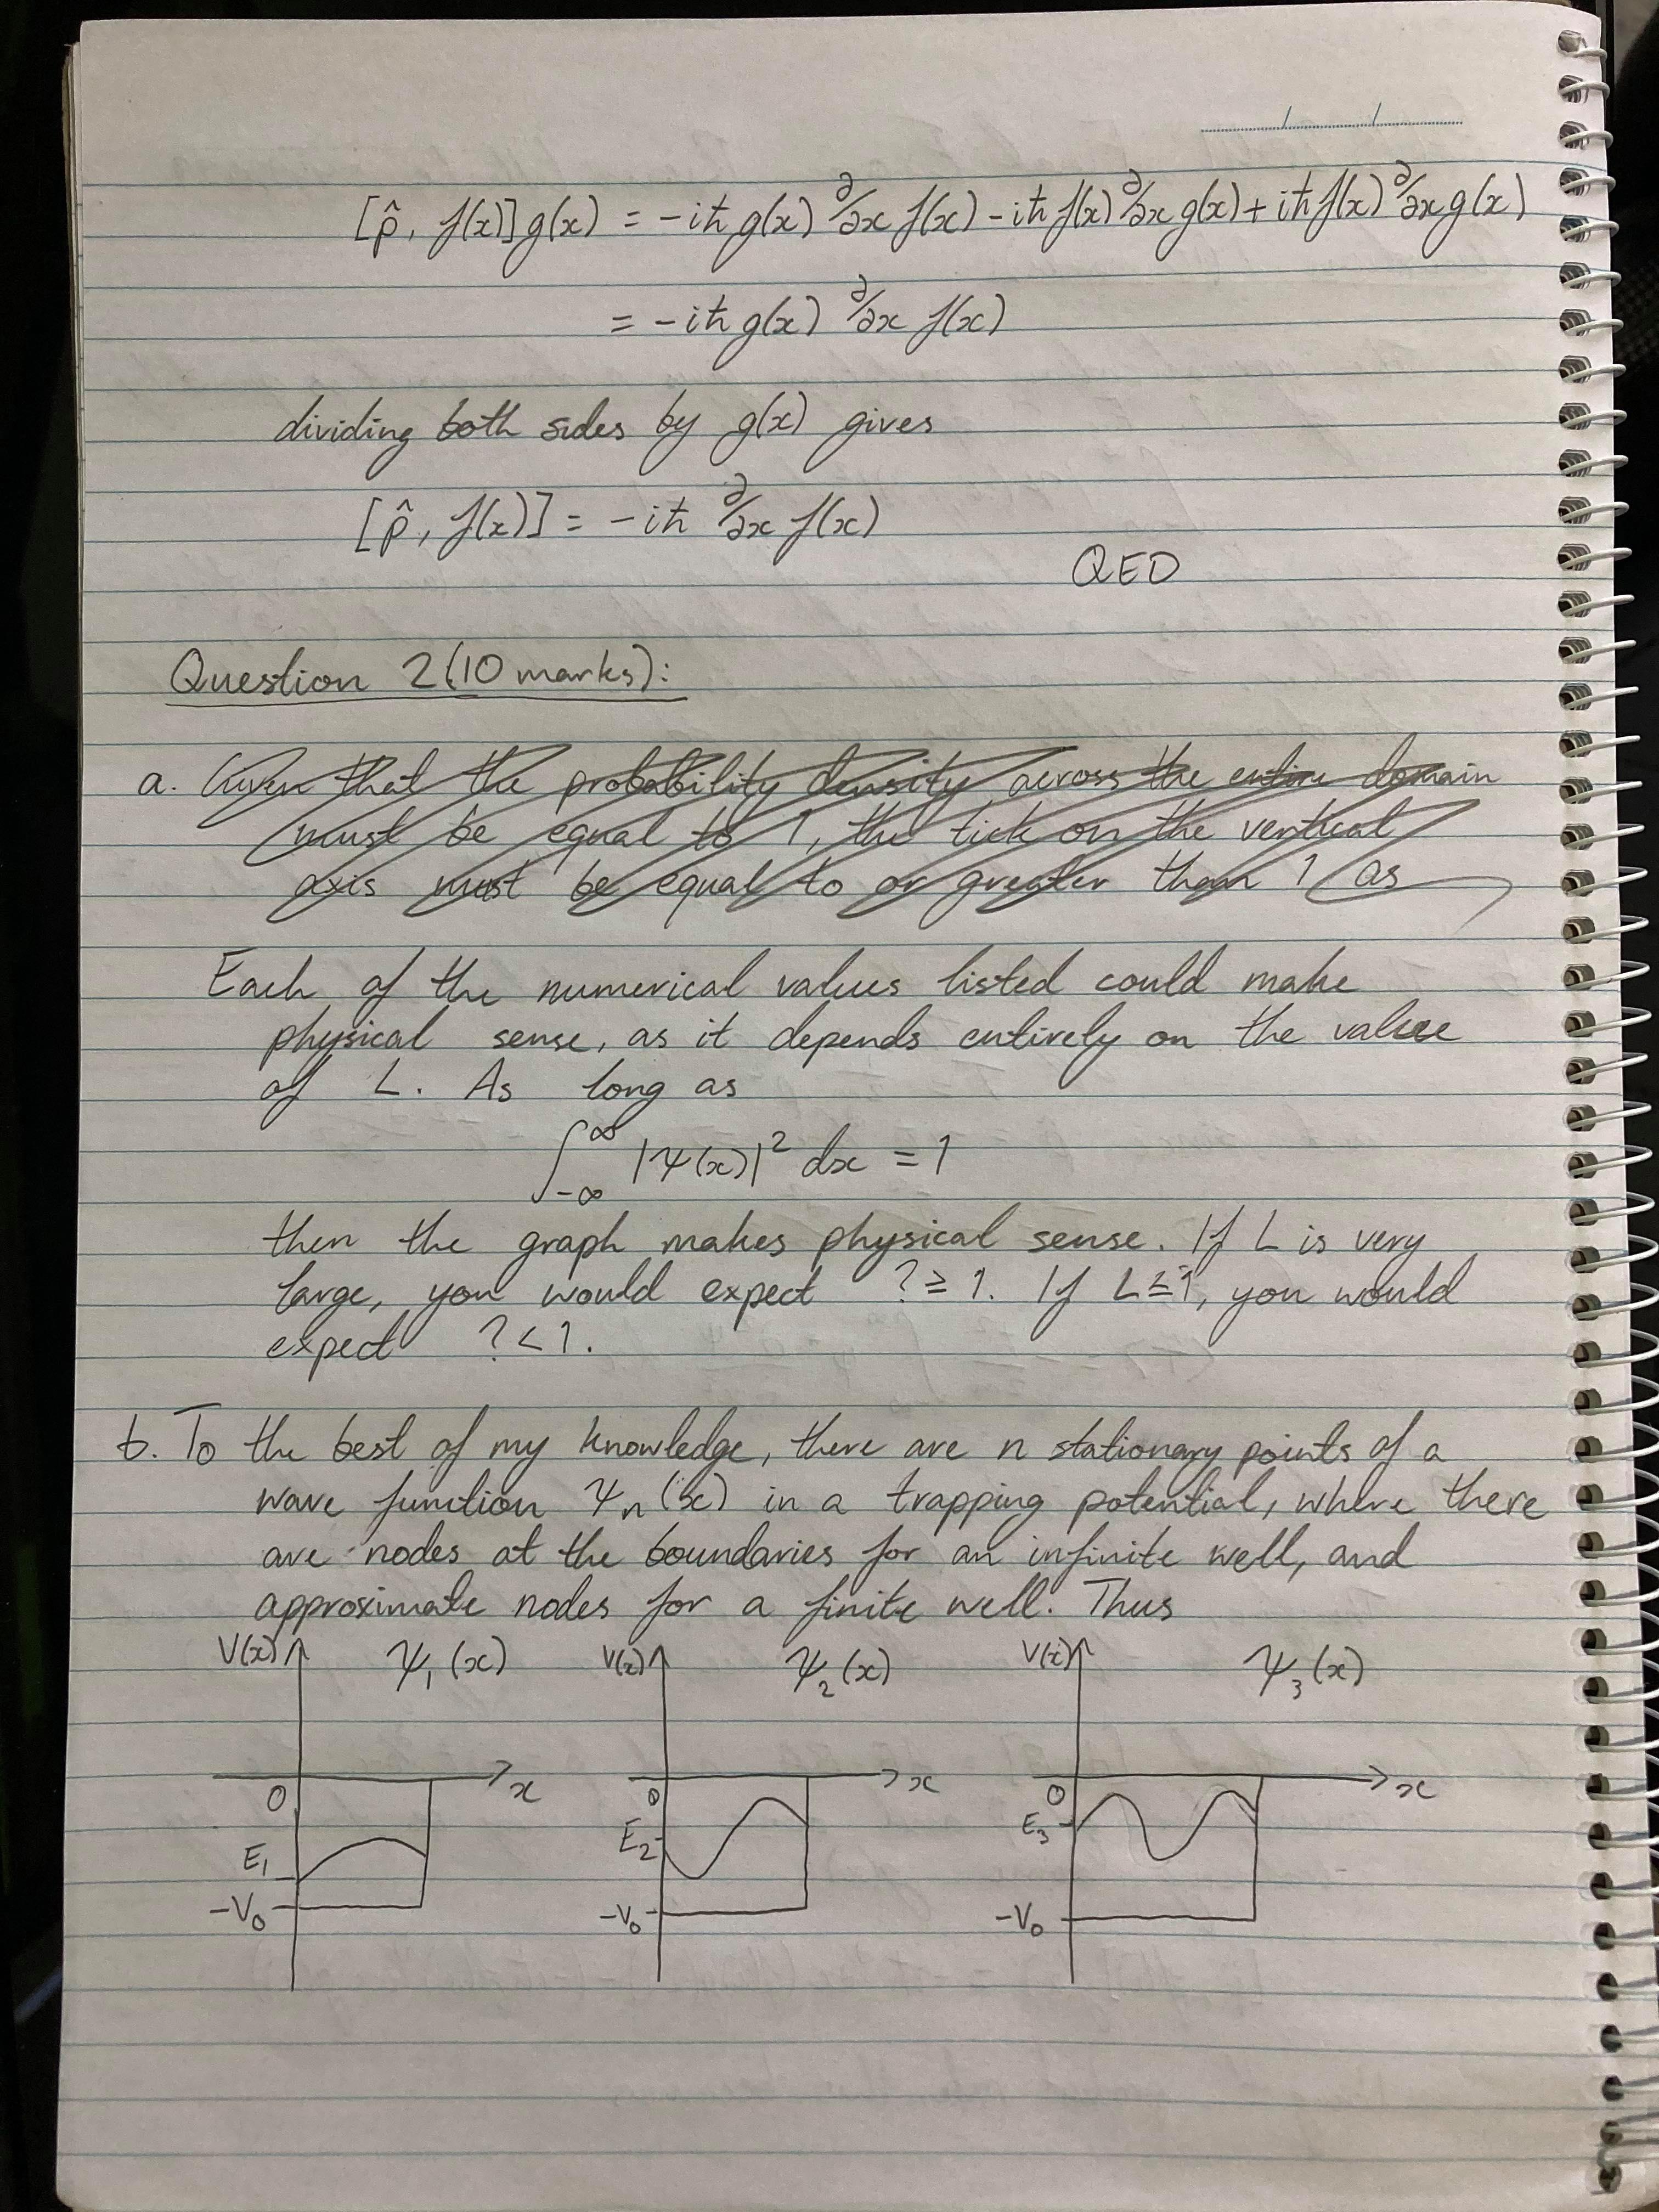 [p̂, f(x)]g(x) = -iħ g(x) ∂/∂x f(x) - iħ f(x) ∂/∂x g(x) + iħ f(x) ∂/∂x g(x)
= -iħ g(x) ∂/∂x f(x)
dividing both sides by g(x) gives
[p̂, f(x)] = -iħ ∂/∂x f(x)
QED
Question 2 (10 marks):
a. Given that the probability density across the entire domain
must be equal to 1, the tick on the vertical
axis must be equal to or greater than 1 as
Each of the numerical values listed could make
physical sense, as it depends entirely on the value
of L. As long as
∫_{-∞}^{∞} |Ψ(x)|² dx = 1
then the graph makes physical sense. If L is very
large, you would expect ? ≥ 1. If L ≤ 1, you would
expect ? < 1.
b. To the best of my knowledge, there are n stationary points of a
wave function Ψₙ(x) in a trapping potential, where there
are nodes at the boundaries for an infinite well, and
approximate nodes for a finite well. Thus
V(x) Ψ₁(x) V(x) Ψ₂(x) V(x) Ψ₃(x)
0 x 0 x 0 x
E₁ E₂ E₃
-V₀ -V₀ -V₀